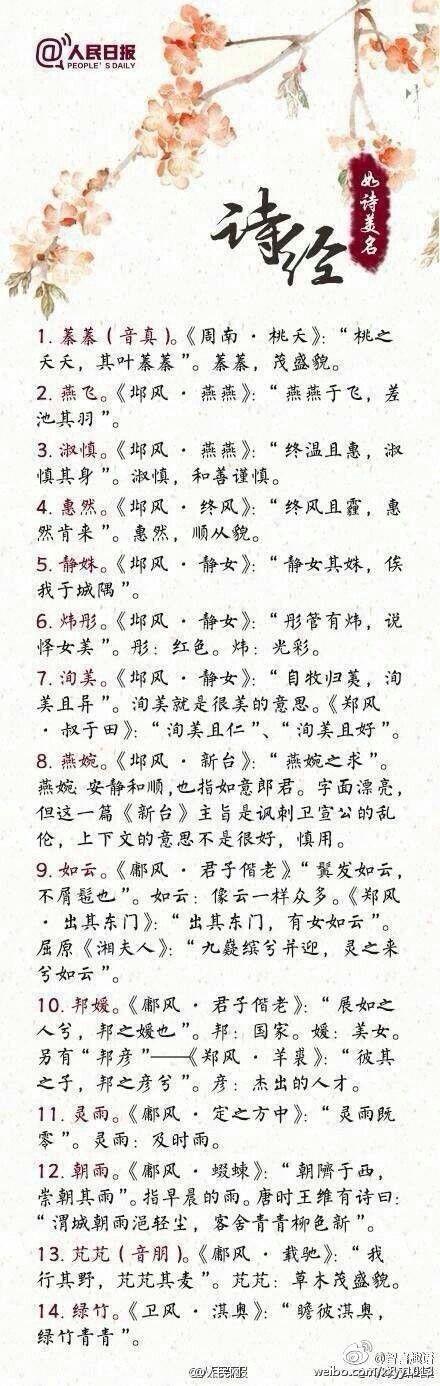 @人民日报
PEOPLE'S DAILY
诗经
如诗美名
1. 蓁蓁（音真）。《周南·桃夭》：“桃之
夭夭，其叶蓁蓁”。蓁蓁，茂盛貌。
2. 燕飞。《邶风·燕燕》：“燕燕于飞，差
池其羽”。
3. 淑慎。《邶风·燕燕》：“终温且惠，淑
慎其身”。淑慎，和善谨慎。
4. 惠然。《邶风·终风》：“终风且霾，惠
然肯来”。惠然，顺从貌。
5. 静姝。《邶风·静女》：“静女其姝，俟
我于城隅”。
6. 炜彤。《邶风·静女》：“彤管有炜，说
怿女美”。彤：红色。炜：光彩。
7. 洵美。《邶风·静女》：“自牧归荑，洵
美且异”。洵美就是很美的意思。《郑风
·叔于田》：“洵美且仁”、“洵美且好”。
8. 燕婉。《邶风·新台》：“燕婉之求”。
燕婉 安静和顺，也指如意郎君。字面漂亮，
但这一篇《新台》主旨是讽刺卫宣公的乱
伦，上下文的意思不是很好，慎用。
9. 如云。《鄘风·君子偕老》“鬒发如云，
不屑髢也”。如云：像云一样众多。《郑风
·出其东门》：“出其东门，有女如云”。
屈原《湘夫人》：“九嶷缤兮并迎，灵之来
兮如云”。
10. 邦媛。《鄘风·君子偕老》：“展如之
人兮，邦之媛也”。邦：国家。媛：美女。
另有“邦彦”——《郑风·羊裘》：“彼其
之子，邦之彦兮”。彦：杰出的人才。
11. 灵雨。《鄘风·定之方中》：“灵雨既
零”。灵雨：及时雨。
12. 朝雨。《鄘风·蝃蝀》：“朝隮于西，
崇朝其雨”。指早晨的雨。唐时王维有诗曰：
“渭城朝雨浥轻尘，客舍青青柳色新”。
13. 芃芃（音朋）。《鄘风·载驰》：“我
行其野，芃芃其麦”。芃芃：草木茂盛貌。
14. 绿竹。《卫风·淇奥》：“瞻彼淇奥，
绿竹青青”。
@人民日报